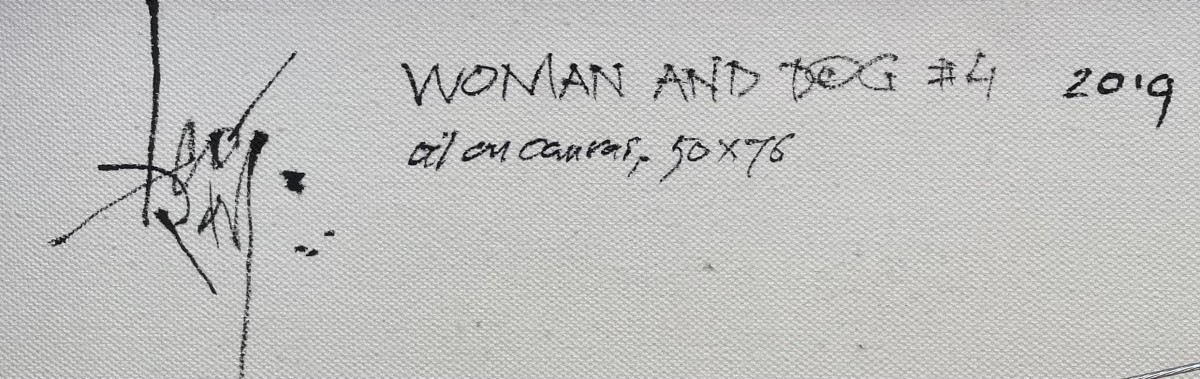 WOMAN AND DOG #4 2019
oil on canvas, 50x76